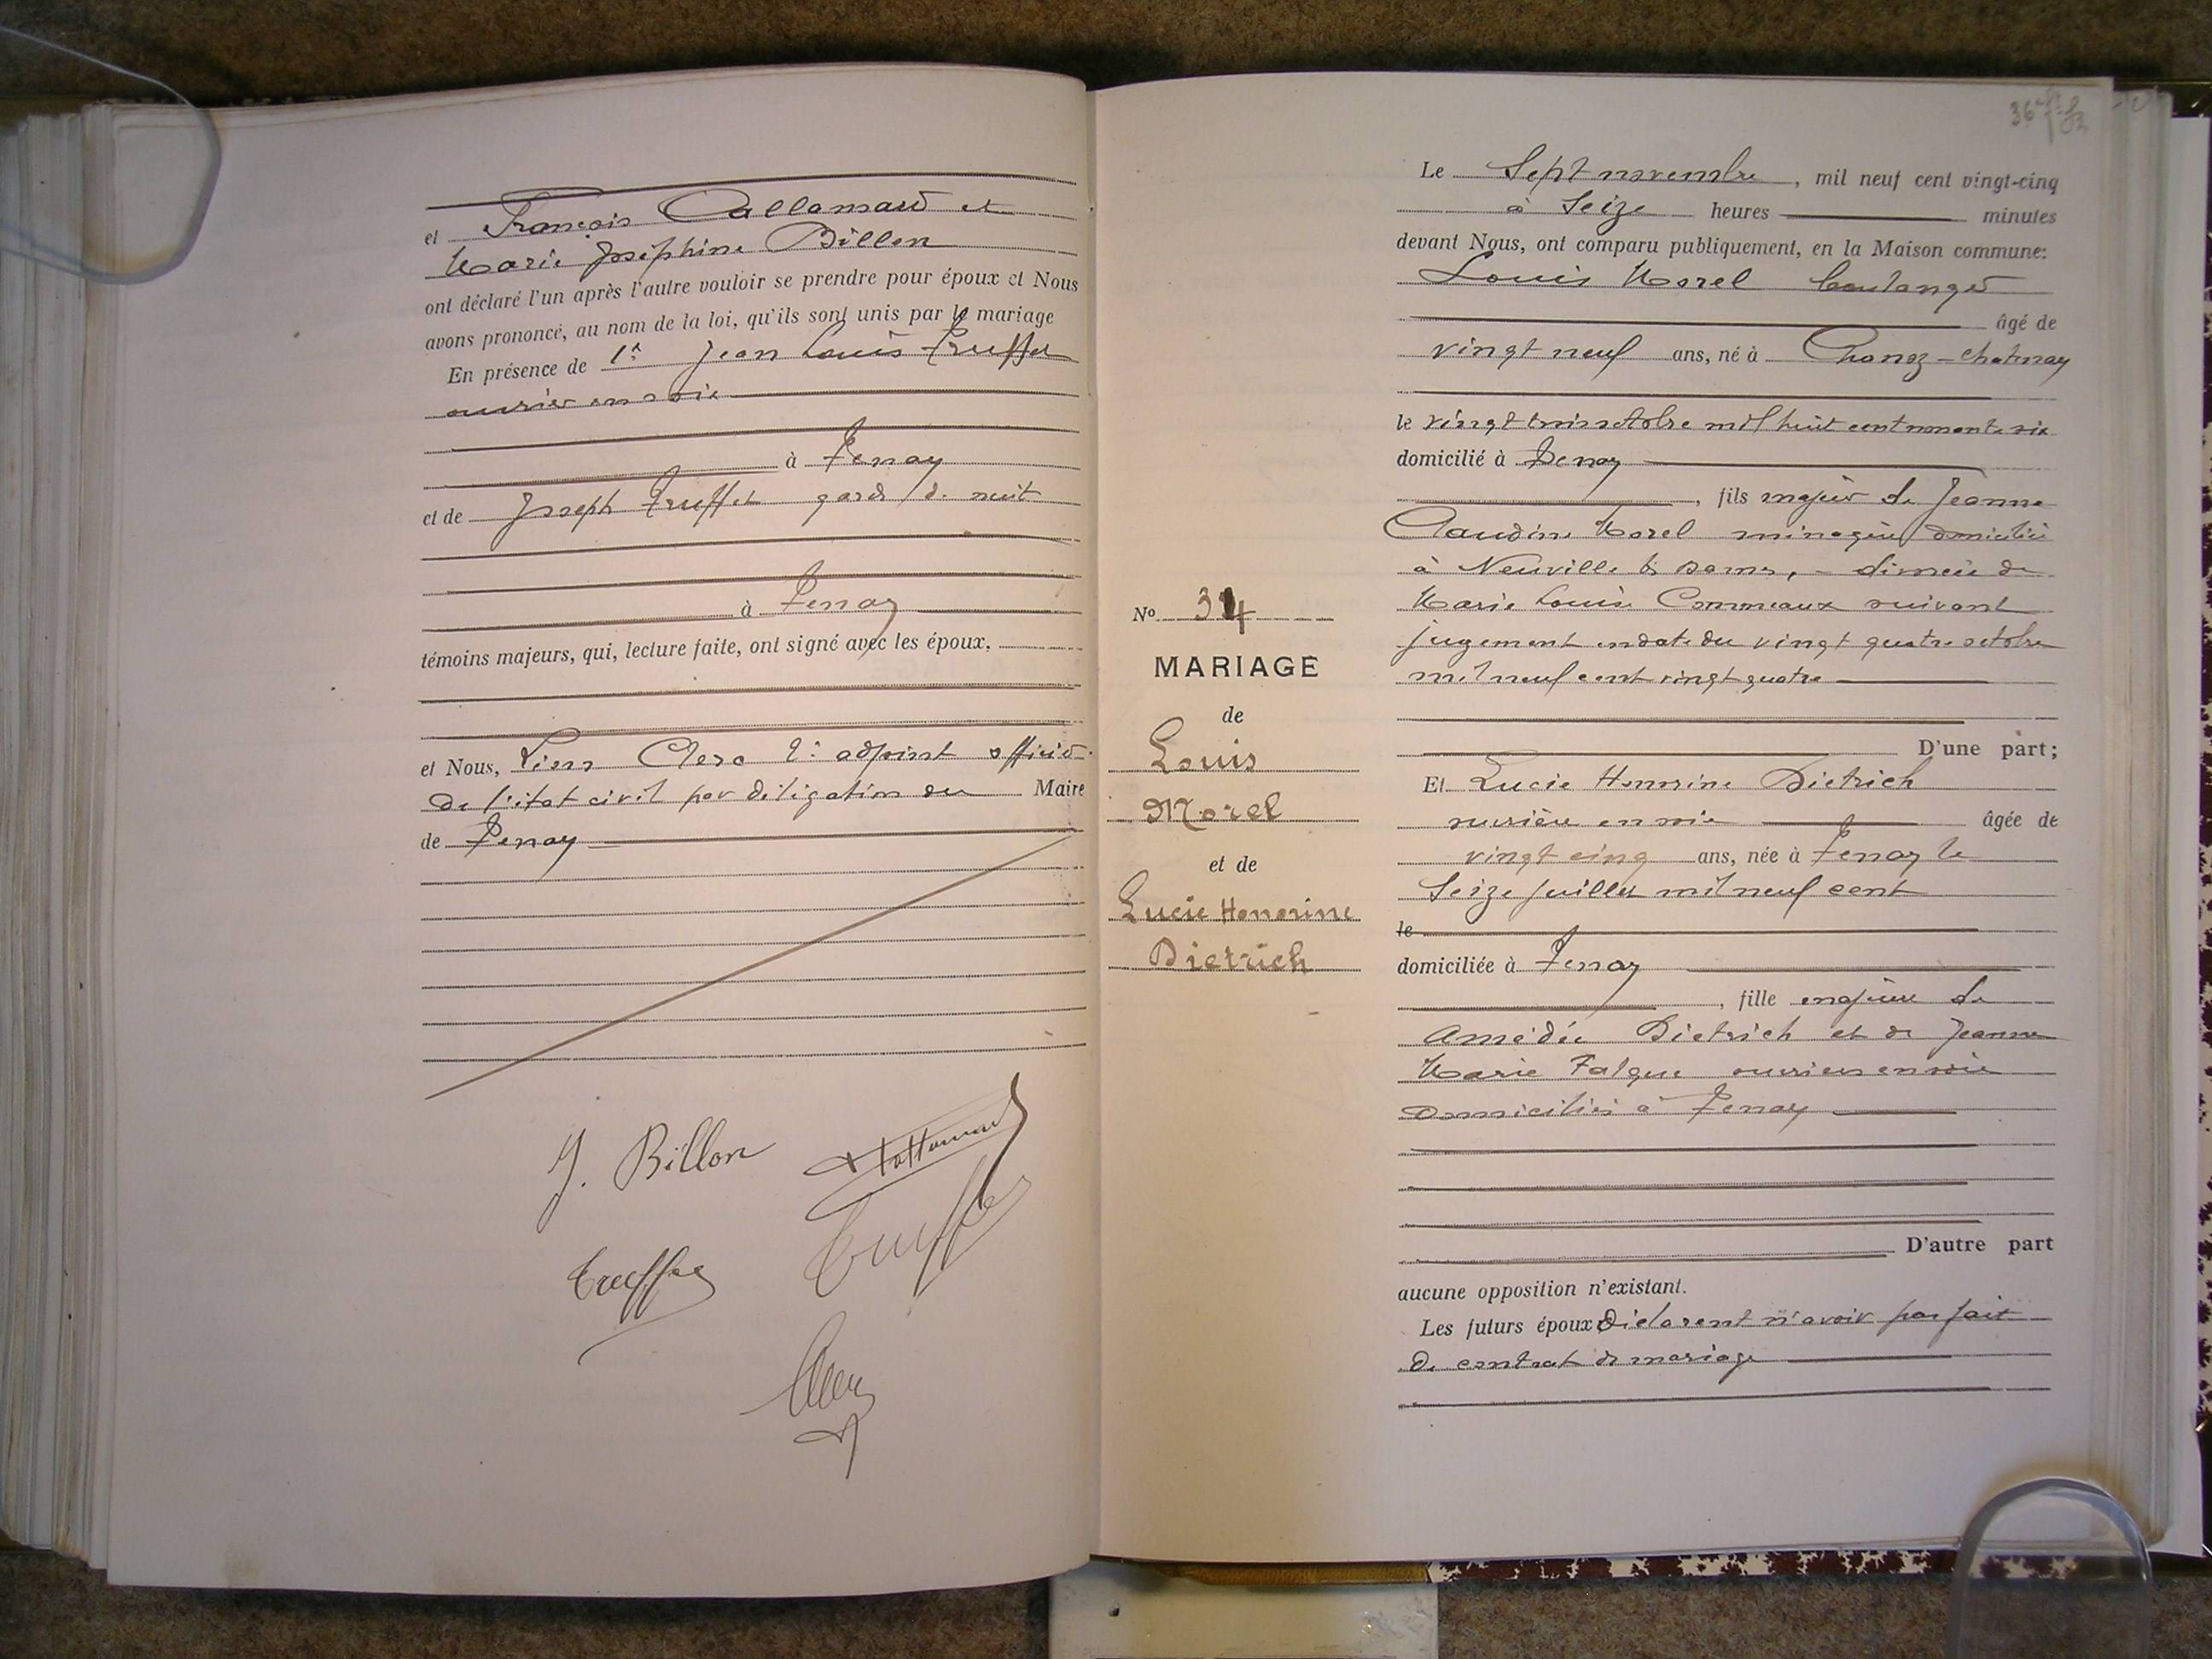 et François Callamard et
Marie Joséphine Billon
ont déclaré l'un après l'autre vouloir se prendre pour époux et Nous
avons prononcé, au nom de la loi, qu'ils sont unis par le mariage
En présence de Jean Louis Truffet
ouvrier en soie
à Tenay
et de Joseph Truffet garde de nuit
à Tenay
témoins majeurs, qui, lecture faite, ont signé avec les époux,
et Nous, Léon Clerc 2e adjoint officier
de l'état civil par délégation du Maire
de Tenay
J. Billon
Truffet
Truffet
Clerc
Le Sept novembre, mil neuf cent vingt-cinq
à Seize heures minutes
devant Nous, ont comparu publiquement, en la Maison commune:
Louis Morel boulanger
âgé de
vingt neuf ans, né à Chanoz-Chatenay
le vingt trois octobre mil huit cent nonante six
domicilié à Tenay
, fils majeur de Jeanne
Claudine Morel ménagère domiciliée
à Neuville les Dames, - divorcé de
Marie Louise Commeaux suivant
jugement en date du vingt quatre octobre
mil neuf cent vingt quatre
D'une part;
Et Lucie Honorine Dietrich
ouvrière en soie âgée de
vingt cinq ans, née à Tenay le
Seize juillet mil neuf cent
le
domiciliée à Tenay
, fille majeure de
Amédée Dietrich et de Jeanne
Marie Falque ouvriers en soie
domiciliés à Tenay
D'autre part
aucune opposition n'existant.
Les futurs époux déclarent n'avoir pas fait
de contrat de mariage
No 34
MARIAGE
de
Louis
Morel
et de
Lucie Honorine
Dietrich